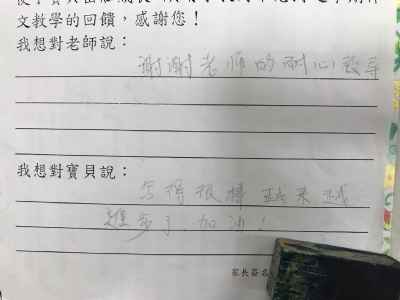 文教學的回饋，感謝您！
我想對老師說：
謝謝老師的耐心教導
我想對寶貝說：
寫得很棒 越來越
進步了，加油！
家長簽名